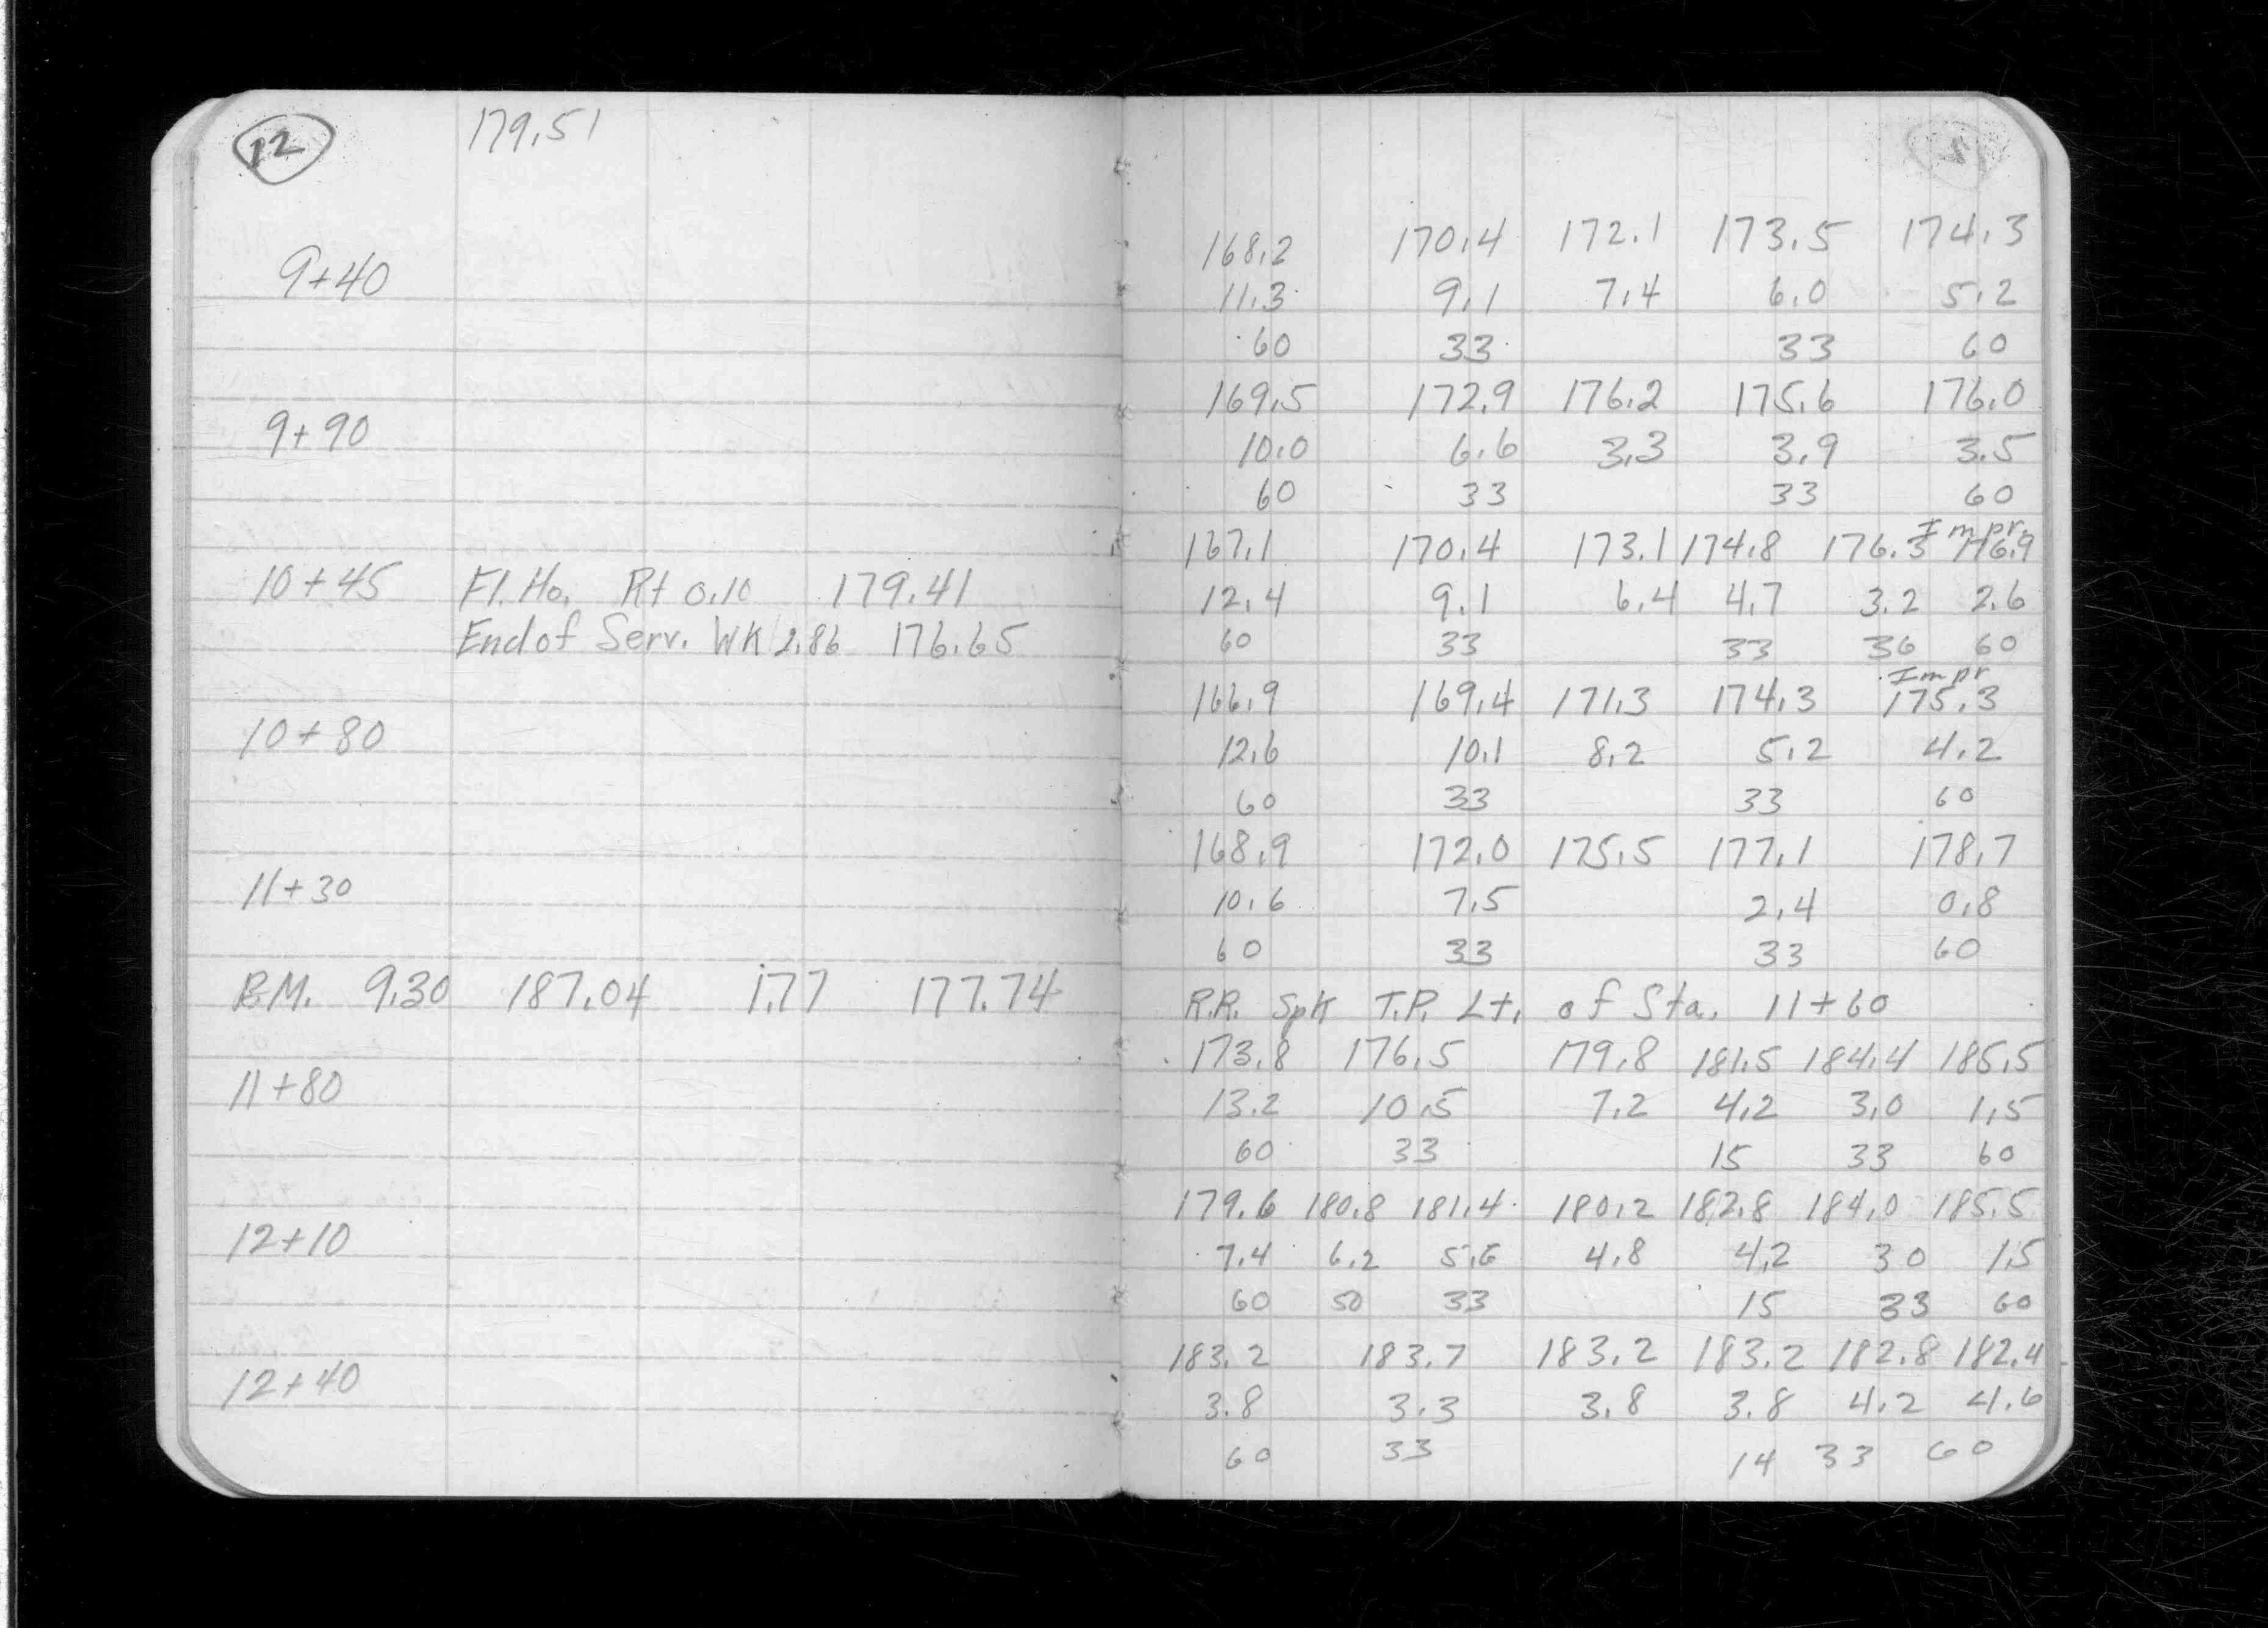 12 179.51
168.2 170.4 172.1 173.5 174.3
9+40 11.3 9.1 7.4 6.0 5.2
60 33 33 60
169.5 172.9 176.2 175.6 176.0
9+90 10.0 6.6 3.3 3.9 3.5
60 33 33 60
Impr.
167.1 170.4 173.1 174.8 176.3 176.9
10+45 Fl. Ho. Rt 0.10 179.41 12.4 9.1 6.4 4.7 3.2 2.6
End of Serv. WK 2.86 176.65 60 33 33 36 60
Impr
166.9 169.4 171.3 174.3 175.3
10+80 12.6 10.1 8.2 5.2 4.2
60 33 33 60
168.9 172.0 175.5 177.1 178.7
11+30 10.6 7.5 2.4 0.8
60 33 33 60
B.M. 9.30 187.04 1.77 177.74 R.R. Spk T.P. Lt. of Sta. 11+60
173.8 176.5 179.8 181.5 184.4 185.5
11+80 13.2 10.5 7.2 4.2 3.0 1.5
60 33 15 33 60
179.6 180.8 181.4 180.2 182.8 184.0 185.5
12+10 7.4 6.2 5.6 4.8 4.2 30 1.5
60 50 33 15 33 60
183.2 183.7 183.2 183.2 182.8 182.4
12+40 3.8 3.3 3.8 3.8 4.2 4.6
60 33 14 33 60